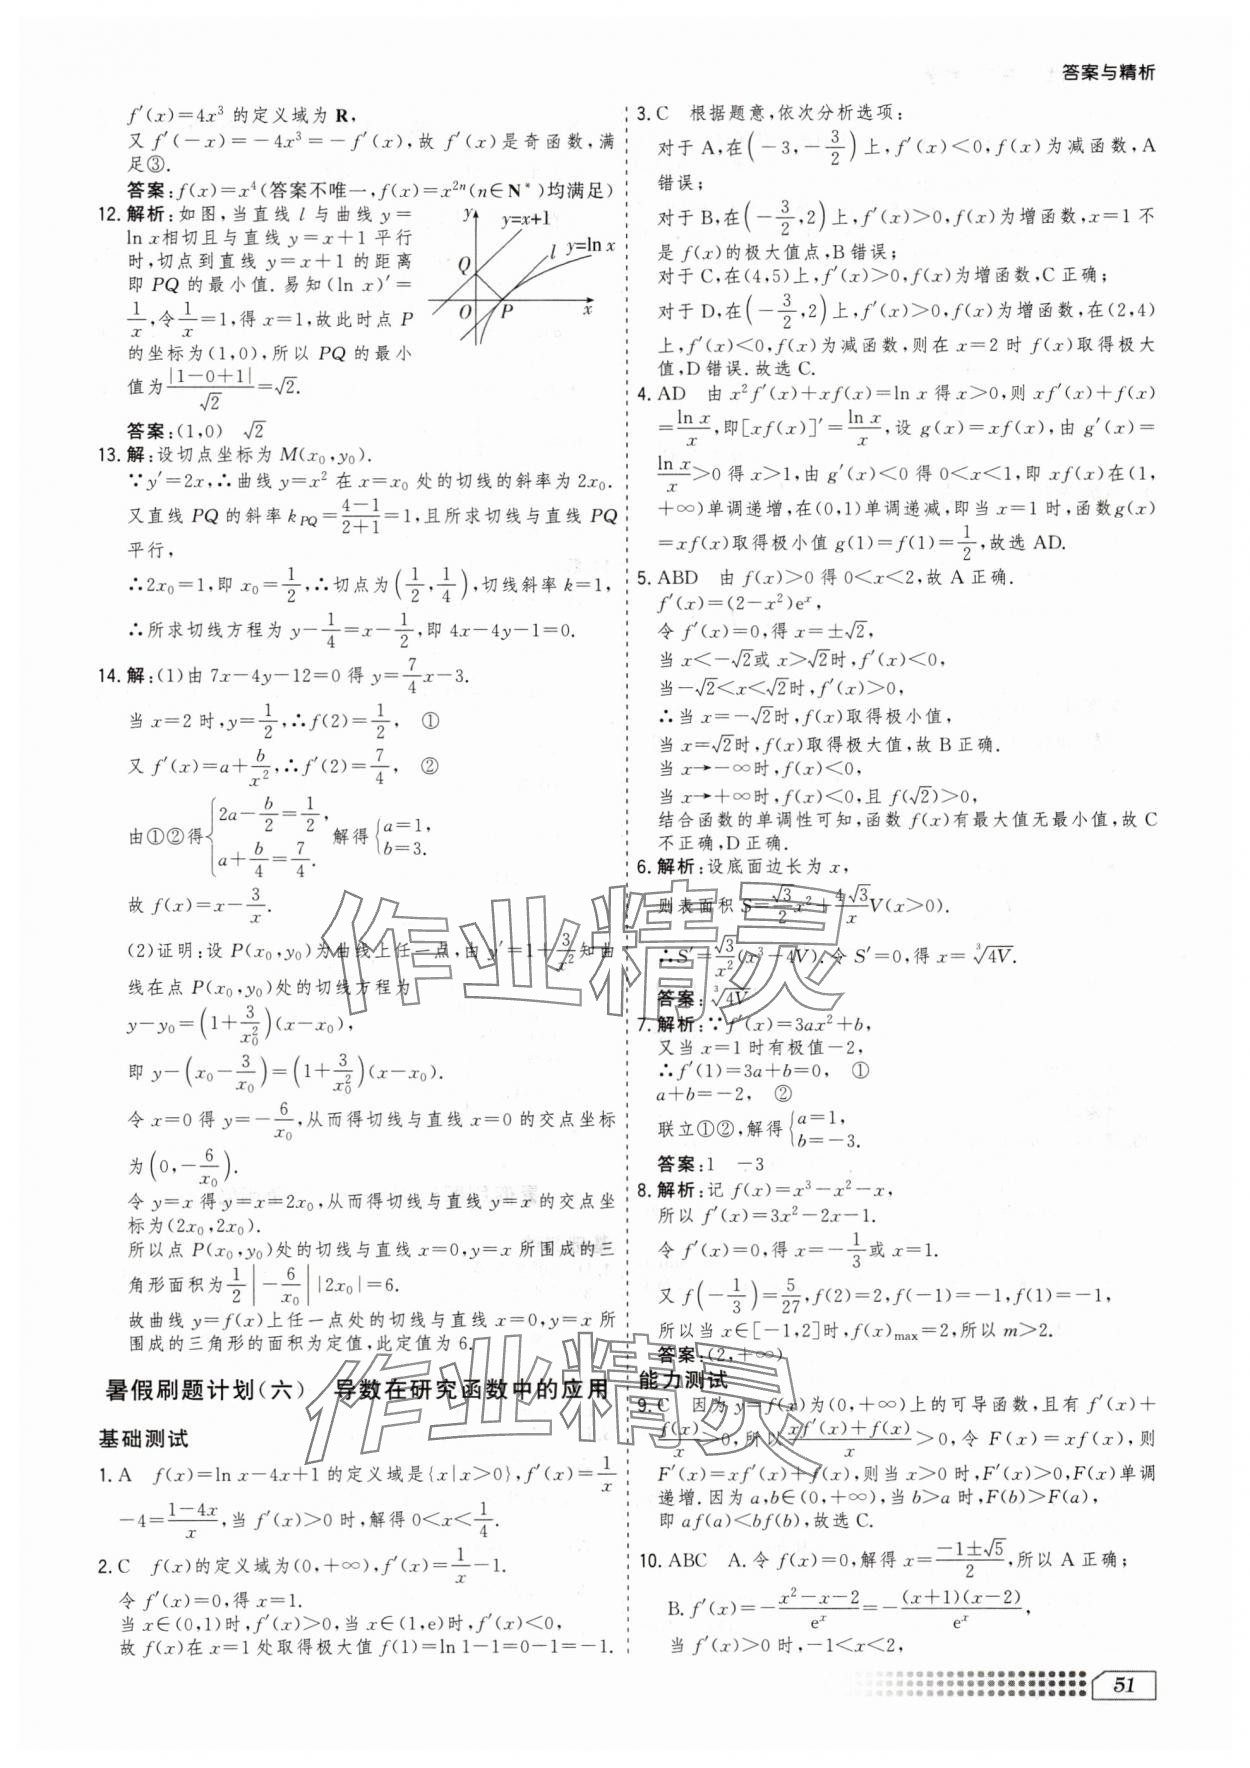 答案与精析
f′(x)=4x³ 的定义域为 R,
又 f′(-x)=-4x³=-f′(x),故 f′(x)是奇函数,满
足③.
答案:f(x)=x⁴(答案不唯一,f(x)=x²ⁿ(n∈N*)均满足)
12. 解析:如图,当直线 l 与曲线 y=
ln x相切且与直线 y=x+1 平行
时,切点到直线 y=x+1 的距离
即 PQ 的最小值.易知(ln x)′=
1/x,令1/x=1,得 x=1,故此时点 P
的坐标为(1,0),所以 PQ 的最小
值为|1-0+1|/√2=√2.
y
y=x+1
l
y=ln x
Q
O
P
x
答案:(1,0) √2
13. 解:设切点坐标为 M(x₀,y₀).
∵y′=2x,∴曲线 y=x² 在 x=x₀ 处的切线的斜率为 2x₀.
又直线 PQ 的斜率 k_PQ=(4-1)/(2+1)=1,且所求切线与直线 PQ
平行,
∴2x₀=1,即 x₀=1/2,∴切点为(1/2,1/4),切线斜率 k=1,
∴所求切线方程为 y-1/4=x-1/2,即 4x-4y-1=0.
14. 解:(1)由 7x-4y-12=0 得 y=7/4x-3.
当 x=2 时,y=1/2,∴f(2)=1/2, ①
又 f′(x)=a+b/x²,∴f′(2)=7/4, ②
由①②得{2a-b/2=1/2, a+b/4=7/4. 解得{a=1, b=3.
故 f(x)=x-3/x.
(2)证明:设 P(x₀,y₀)为曲线上任一点,由 y′=1+3/x²知曲
线在点 P(x₀,y₀)处的切线方程为
y-y₀=(1+3/x₀²)(x-x₀),
即 y-(x₀-3/x₀)=(1+3/x₀²)(x-x₀).
令 x=0 得 y=-6/x₀,从而得切线与直线 x=0 的交点坐标
为(0,-6/x₀).
令 y=x 得 y=x=2x₀,从而得切线与直线 y=x 的交点坐
标为(2x₀,2x₀).
所以点 P(x₀,y₀)处的切线与直线 x=0,y=x 所围成的三
角形面积为1/2|-6/x₀||2x₀|=6.
故曲线 y=f(x)上任一点处的切线与直线 x=0,y=x 所
围成的三角形的面积为定值,此定值为 6.
暑假刷题计划(六) 导数在研究函数中的应用
基础测试
1. A f(x)=ln x-4x+1 的定义域是{x|x>0},f′(x)=1/x
-4=(1-4x)/x,当 f′(x)>0 时,解得 0<x<1/4.
2. C f(x)的定义域为(0,+∞),f′(x)=1/x-1.
令 f′(x)=0,得 x=1.
当 x∈(0,1)时,f′(x)>0,当 x∈(1,e)时,f′(x)<0,
故 f(x)在 x=1 处取得极大值 f(1)=ln 1-1=0-1=-1.
3. C 根据题意,依次分析选项:
对于 A,在(-3,-3/2)上,f′(x)<0,f(x)为减函数,A
错误;
对于 B,在(-3/2,2)上,f′(x)>0,f(x)为增函数,x=1 不
是 f(x)的极大值点,B 错误;
对于 C,在(4,5)上,f′(x)>0,f(x)为增函数,C 正确;
对于 D,在(-3/2,2)上,f′(x)>0,f(x)为增函数,在(2,4)
上,f′(x)<0,f(x)为减函数,则在 x=2 时 f(x)取得极大
值,D 错误.故选 C.
4. AD 由 x²f′(x)+xf(x)=ln x 得 x>0,则 xf′(x)+f(x)
=ln x/x,即[xf(x)]′=ln x/x,设 g(x)=xf(x),由 g′(x)=
ln x/x>0 得 x>1,由 g′(x)<0 得 0<x<1,即 xf(x)在(1,
+∞)单调递增,在(0,1)单调递减,即当 x=1 时,函数g(x)
=xf(x)取得极小值 g(1)=f(1)=1/2,故选 AD.
5. ABD 由 f(x)>0 得 0<x<2,故 A 正确.
f′(x)=(2-x²)eˣ,
令 f′(x)=0,得 x=±√2,
当 x<-√2或 x>√2时,f′(x)<0,
当-√2<x<√2时,f′(x)>0,
∴当 x=-√2时,f(x)取得极小值,
当 x=√2时,f(x)取得极大值,故 B 正确.
当 x→-∞时,f(x)<0,
当 x→+∞时,f(x)<0,且 f(√2)>0,
结合函数的单调性可知,函数 f(x)有最大值无最小值,故 C
不正确,D 正确.
6. 解析:设底面边长为 x,
则表面积 S=√3/2x²+4√3/xV(x>0).
∴S′=√3/x²(x³-4V).令 S′=0,得 x=∛4V.
答案:∛4V
7. 解析:∵f′(x)=3ax²+b,
又当 x=1 时有极值-2,
∴f′(1)=3a+b=0, ①
a+b=-2, ②
联立①②,解得{a=1, b=-3.
答案:1 -3
8. 解析:记 f(x)=x³-x²-x,
所以 f′(x)=3x²-2x-1.
令 f′(x)=0,得 x=-1/3或 x=1.
又 f(-1/3)=5/27,f(2)=2,f(-1)=-1,f(1)=-1,
所以当 x∈[-1,2]时,f(x)max=2,所以 m>2.
答案:(2,+∞)
能力测试
9. C 因为 y=f(x)为(0,+∞)上的可导函数,且有 f′(x)+
f(x)/x>0,所以(xf′(x)+f(x))/x>0,令 F(x)=xf(x),则
F′(x)=xf′(x)+f(x),则当 x>0 时,F′(x)>0,F(x)单调
递增.因为 a,b∈(0,+∞),当 b>a 时,F(b)>F(a),
即 af(a)<bf(b),故选 C.
10. ABC A.令 f(x)=0,解得 x=(-1±√5)/2,所以 A 正确;
B.f′(x)=-(x²-x-2)/eˣ=-(x+1)(x-2)/eˣ,
当 f′(x)>0 时,-1<x<2,
51
作业精灵
作业精灵